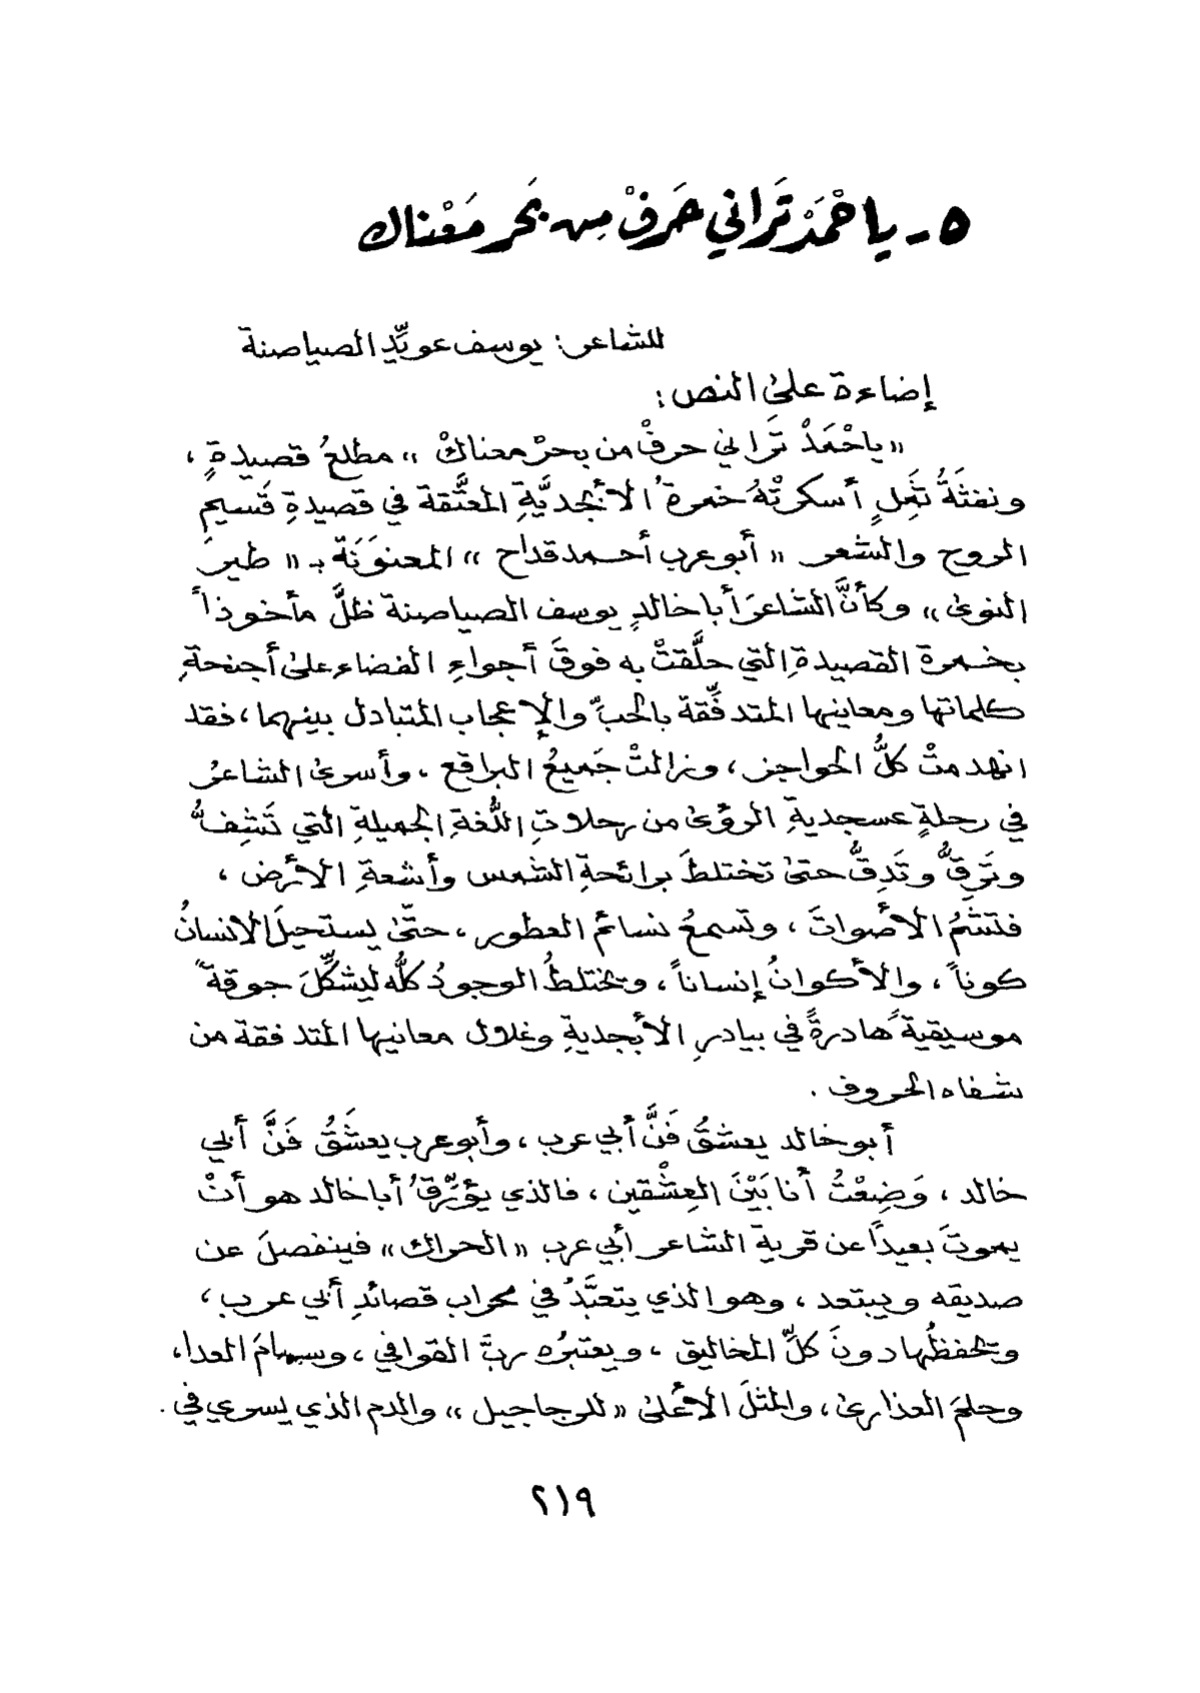 ٥ - ياحْمَدْ تَراني حَرفْ مِن بَحر مَعْناك
للشاعر: يوسف عويِّد الصياصنة
إضاءة على النص:
« ياحْمَدْ تَراني حرفْ من بحرْ معناكْ » مطلعُ قصيدةٍ ،
ونفثَةُ ثَمِلٍ أسكرتْهُ خمرةُ الأبجديَّةِ المعتَّقة في قصيدةِ قَسيمِ
الروح والشعر « أبو عرب أحمد قداح » المعنوَنَة بـ « طير
النوى » وكأنَّ الشاعرَ أبا خالدٍ يوسف الصياصنة ظلَّ مأخوذاً
بخمرة القصيدةِ التي حلَّقتْ به فوقَ أجواءِ الفضاء على أجنحةِ
كلماتها ومعانيها المتدفِّقة بالحبِّ والإعجاب المتبادل بينهما ، فقد
انهدمتْ كلُّ الحواجز ، وزالتْ جَميعُ البراقع ، وأسرى الشاعرُ
في رحلةٍ عسجديةِ الرؤى من رحلاتِ اللُّغةِ الجميلةِ التي تَشِفُّ
وتَرِقُّ وتَدِقُّ حتى تختلطَ برائحةِ الشمس وأشعةِ الأرض ،
فتشَمُّ الأصواتَ ، وتسمعُ نسائم العطور ، حتّى يستحيلَ الانسانُ
كوناً ، والأكوانُ إنساناً ، ويختلطُ الوجودُ كلُّه ليشكِّلَ جوقةً
موسيقيةً هادرةً في بيادرِ الأبجديةِ وغلال معانيها المتدفقة من
شفاه الحروف .
أبو خالد يعشقُ فَنَّ أبي عرب ، وأبو عرب يعشَقُ فَنَّ أبي
خالد ، وَضِعْتُ أنا بَيْنَ العِشْقين ، فالذي يؤرِّقُ أبا خالد هو أنْ
يموتَ بعيداً عن قرية الشاعر أبي عرب « الحراك » فينفصلَ عن
صديقه ويبتعد ، وهو الذي يتعبَّدُ في محراب قصائدِ أبي عرب ،
ويحفظُها دونَ كلِّ المخاليق ، ويعتبرُه ربَّ القوافي ، وسهامَ العدا ،
وحلمَ العذارى ، والمثلَ الأعلى « للرجاجيل » والدم الذي يسري في
٢١٩